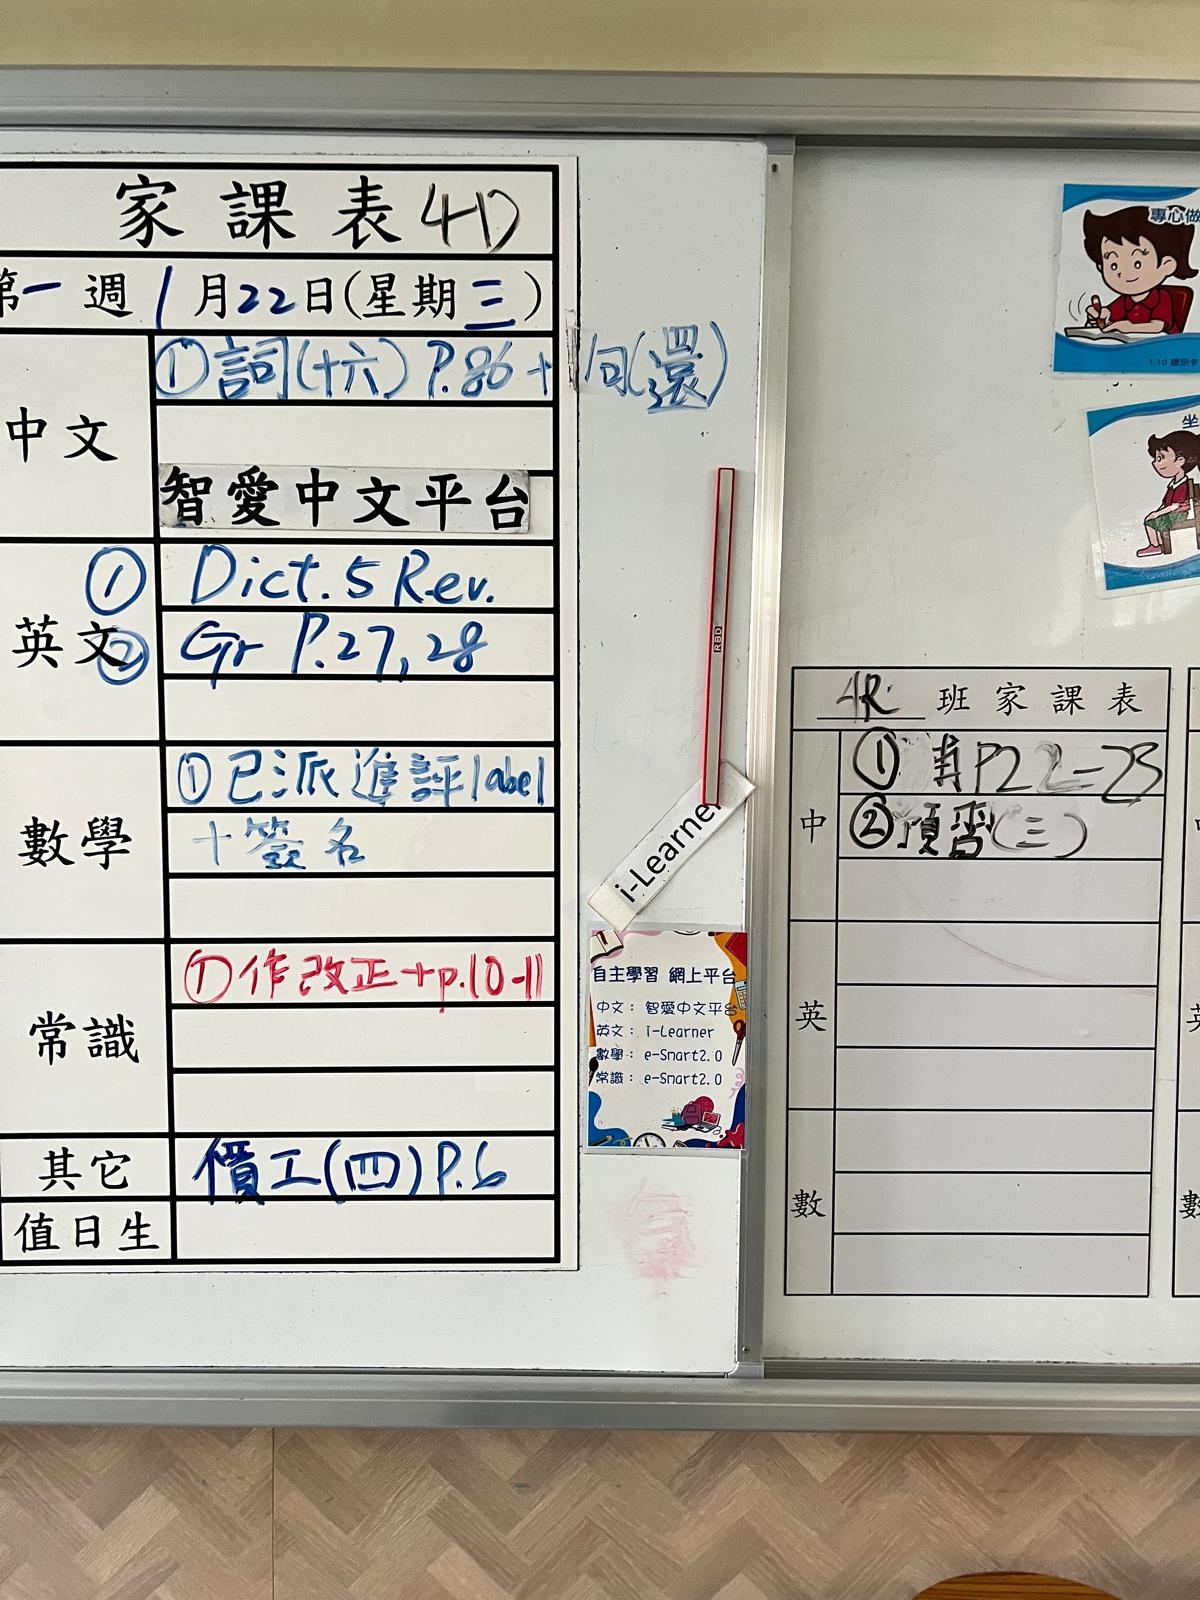 家課表 4D
第一週 1月22日(星期三)
中文
①詞(十六) P.86 + 1句(還)
智愛中文平台
英文
① Dict. 5 Rev.
② Gr P.27, 28
數學
①已派進評label
+簽名
常識
①作改正+p.10-11
其它
價工(四) P.6
值日生
i-Learner
自主學習 網上平台
中文：智愛中文平台
英文：i-Learner
數學：e-Smart2.0
常識：e-Smart2.0
專心做
1.10 提示卡
坐
4R 班家課表
中
① P22-23
②預習(三)
英
數